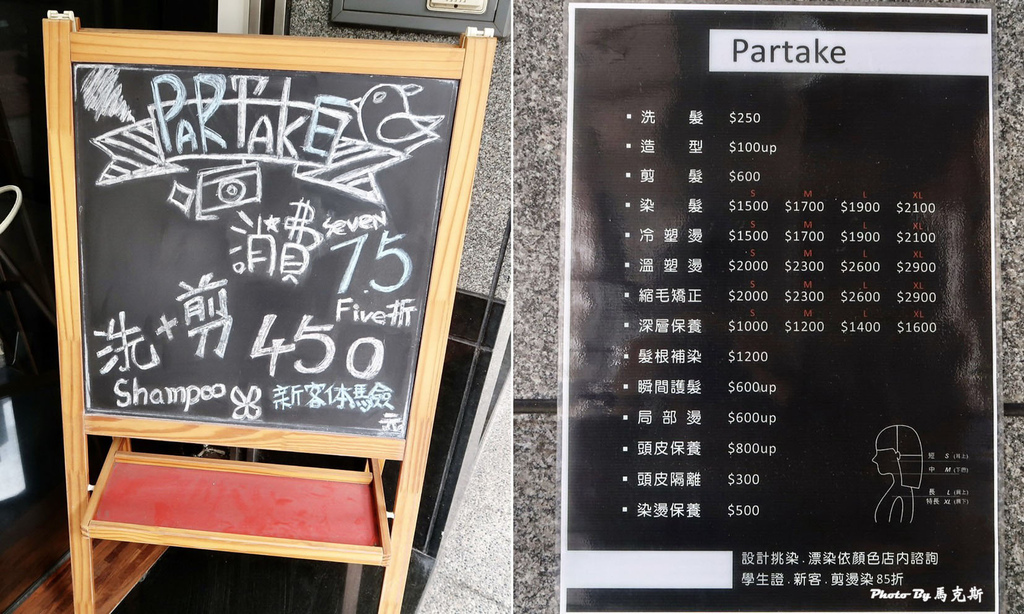 PARTAKE
消費 seven
75
Five折
洗+剪 450
Shampoo 新客体驗
元
Partake
▪ 洗 髮 $250
▪ 造 型 $100up
▪ 剪 髮 $600
S M L XL
▪ 染 髮 $1500 $1700 $1900 $2100
S M L XL
▪ 冷 塑 燙 $1500 $1700 $1900 $2100
S M L XL
▪ 溫 塑 燙 $2000 $2300 $2600 $2900
S M L XL
▪ 縮毛矯正 $2000 $2300 $2600 $2900
S M L XL
▪ 深層保養 $1000 $1200 $1400 $1600
▪ 髮根補染 $1200
▪ 瞬間護髮 $600up
▪ 局 部 燙 $600up
▪ 頭皮保養 $800up
▪ 頭皮隔離 $300
▪ 染燙保養 $500
短 S (耳上)
中 M
長 L (肩上)
特長 XL
設計挑染.漂染依顏色店內諮詢
學生證.新客.剪燙染85折
Photo By 馬克斯